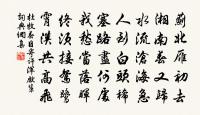 薊北雁初去
湘南春又歸
水流滄海急
人到白頭稀
塞路盡何處
我愁當落暉
終須接鴛鷺
霄漢共高飛
杜牧春日寄許渾先輩
詞典網集